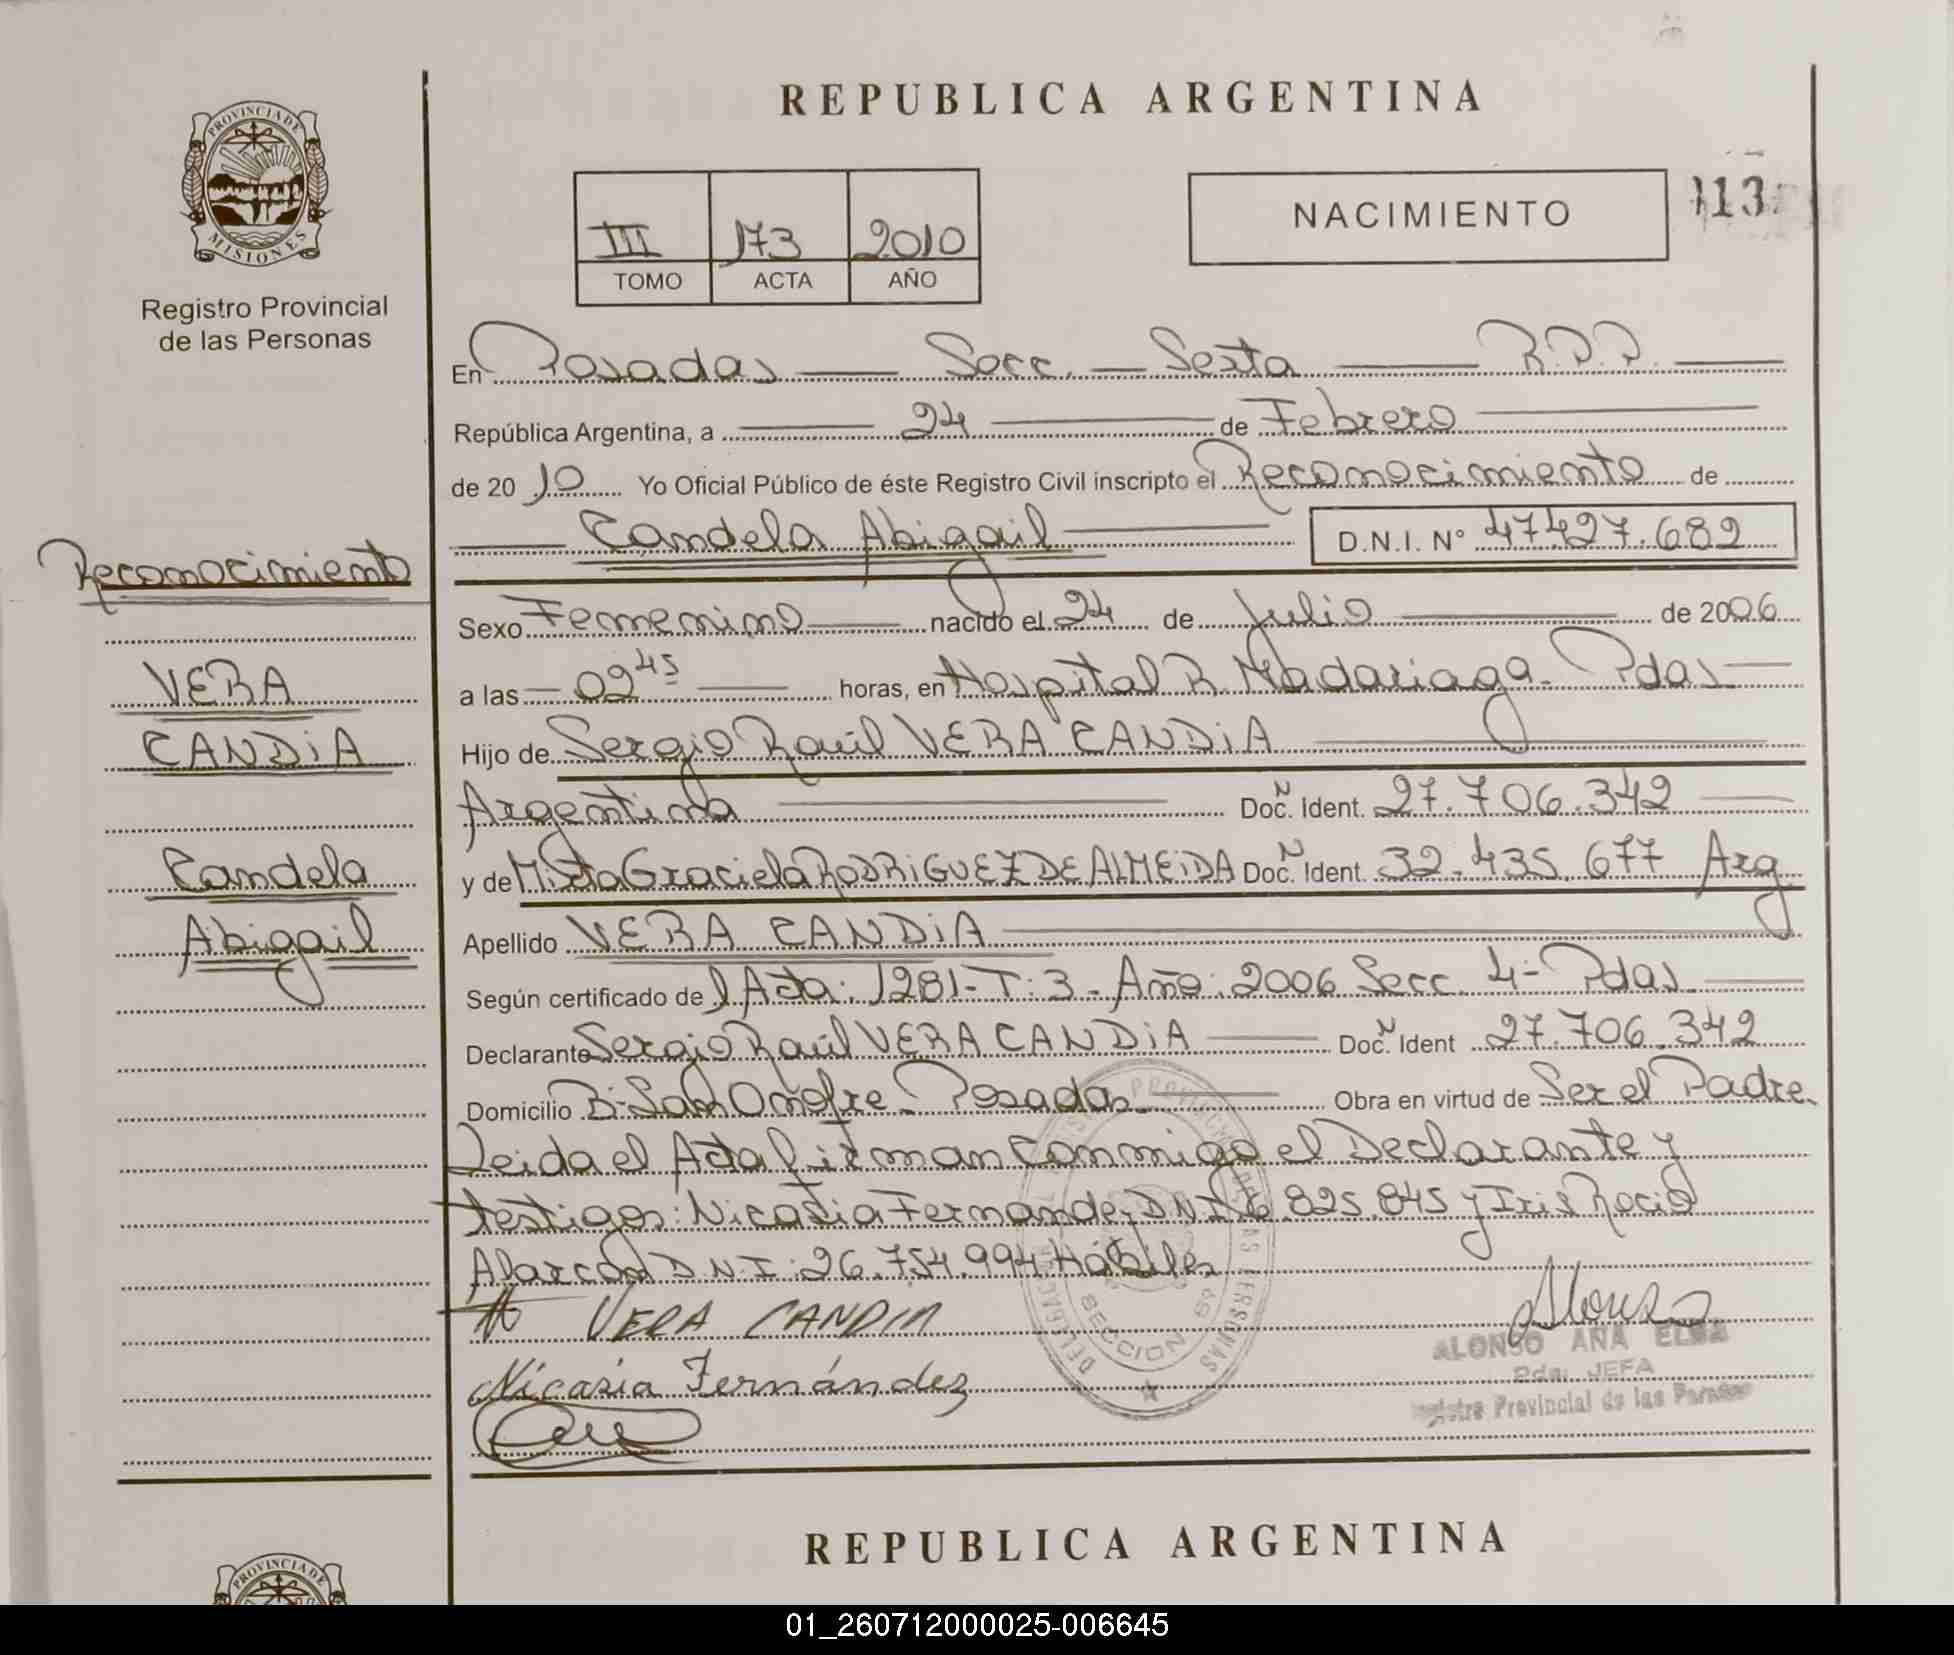 REPUBLICA ARGENTINA
PROVINCIA DE
MISIONES
Registro Provincial
de las Personas
III 173 2010
TOMO ACTA AÑO
NACIMIENTO
113
En Posadas — Secc. — Sexta — R.P.P. —
República Argentina, a — 24 — de Febrero —
de 2010 Yo Oficial Público de éste Registro Civil inscripto el Reconocimiento de
— Candela Abigail — D.N.I. Nº 47427.682
Reconocimiento
VERA
CANDIA
Candela
Abigail
Sexo Femenino — nacido el 24 de Julio — de 2006
a las — 02 45 — horas, en Hospital R. Madariaga - Pdas —
Hijo de Sergio Raúl VERA CANDIA —
Argentina — Doc. N Ident. 27.706.342 —
y de Mirta Graciela RODRIGUEZ DE ALMEIDA Doc. N Ident. 32.435.677 Arg
Apellido VERA CANDIA —
Según certificado de l Acta: 1281-T: 3- Año: 2006 Secc. 4- Pdas. —
Declarante Sergio Raúl VERA CANDIA — Doc. N Ident 27.706.342
Domicilio B: San Onofre - Posadas — Obra en virtud de Ser el Padre.
Leida el Acta firman conmigo el Declarante y
testigos: Nicasia Fernandez D.N.I. 6.825.845 y Iris Rocio
Alarcón D.N.I: 26.754.994 Hábiles
VERA CANDIA
Nicasia Fernández
SECCION 6ª
ALONSO ANA ELBA
Pda. JEFA
Registro Provincial de las Personas
REPUBLICA ARGENTINA
PROVINCIA DE
01_260712000025-006645